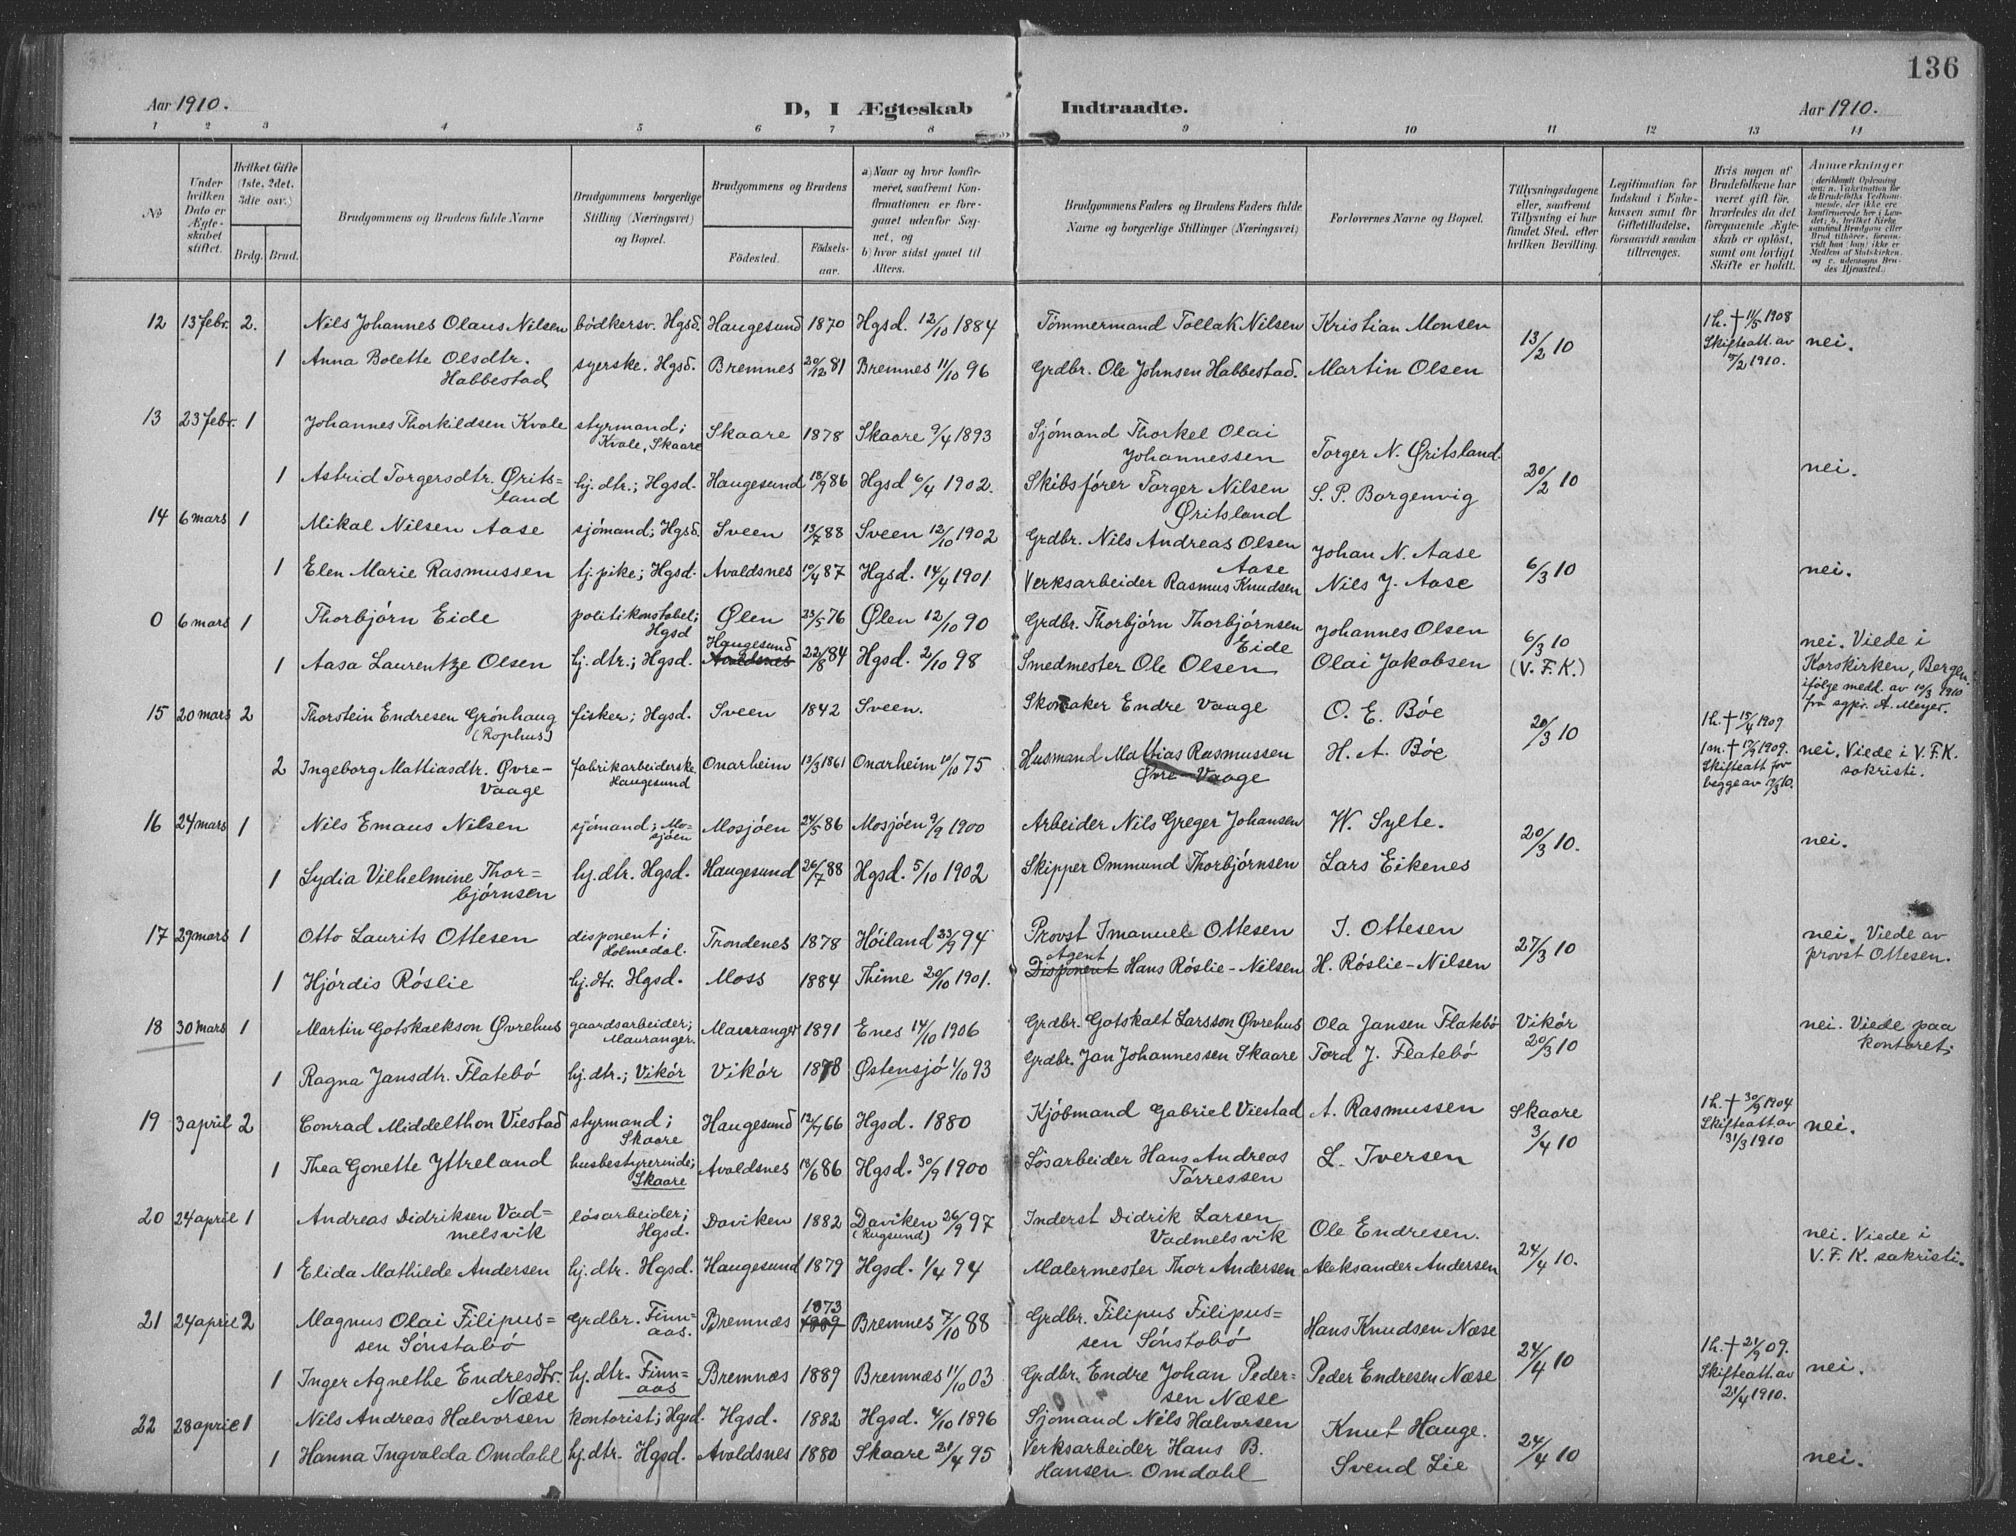 136
Aar 1910.
D, I Ægteskab Indtraadte.
Aar 1910.
1 2 3 4 5 6 7 8 9 10 11 12 13 14
No
Under hvilken Dato er Ægteskabet stiftet.
Hvilket Gifte (1ste, 2det, 3die osv.)
Brdg. Brud.
Brudgommens og Brudens fulde Navne
Brudgommens borgerlige Stilling (Næringsvei) og Bopæl.
Brudgommens og Brudens
Fødested. Fødselsaar.
a) Naar og hvor konfirmeret, saafremt Konfirmationen er foregaaet udenfor Sognet, og
b) hvor sidst gaaet til Alters.
Brudgommens Faders og Brudens Faders fulde Navne og borgerlige Stillinger (Næringsvei)
Forlovernes Navne og Bopæl.
Tillysningsdagene eller, saafremt Tillysning ei har fundet Sted, efter hvilken Bevilling.
Legitimation for Indskud i Enkekassen samt for Giftetilladelse, forsaavidt saadan tiltrænges.
Hvis nogen af Brudefolkene har været gift før, hvorledes da det foregaaende Ægteskab er opløst, samt om lovligt Skifte er holdt.
Anmerkninger
(deriblandt Oplysning om: a. Vakcination for de Brudefolks Vedkommende, der ikke ere konfirmerede her i Landet; b. hvilket Kirkesamfund Brudgom eller Brud tilhører, forsaavidt han (hun) ikke er Medlem af Statskirken, og c. udensogns Brudes Hjemsted.)
12 13 febr. 2. Nils Johannes Olaus Nilsen bødkersv. Hgsd. Haugesund 1870 Hgsd. 12/10 1884 Tømmermand Tollak Nilsen Kristian Monsen 13/2 10 1 h. † 11/5 1908 Skifteatt. av 5/2 1910. nei.
1 Anna Bolette Olsdtr. Habbestad syerske. Hgsd. Bremnes 20/12 81 Bremnes 11/10 96 Grdbr. Ole Johnsen Habbestad. Martin Olsen
13 23 febr. 1 Johannes Thorkildsen Kvale styrmand; Kvale, Skaare Skaare 1878 Skaare 9/4 1893 Sjómand Thorkel Olai Johannessen Torger N. Øritsland. 20/2 10 nei.
1 Astrid Torgersdtr. Øritsland hj. dtr.; Hgsd. Haugesund 18/9 86 Hgsd 6/4 1902. Skibsfórer Torger Nilsen Øritsland S. P. Borgenvig
14 6 mars 1 Mikal Nilsen Aase sjómand; Hgsd. Sveen 13/7 88 Sveen 12/10 1902 Grdbr. Nils Andreas Olsen Aase Johan N. Aase 6/3 10 nei.
1 Elen Marie Rasmussen tj. pike; Hgsd. Avaldsnes 10/4 87 Hgsd. 14/4 1901. Verksarbeider Rasmus Knudsen Nils J. Aase
0 6 mars 1 Thorbjórn Eide politikonstabel; Hgsd Ølen 23/5 76 Ølen 12/10 90 Grdbr. Thorbjórn Thorbjórnsen Eide Johannes Olsen 6/3 10 (V. F. K.) nei. Viede i Korskirken, Bergen. ifølge medd. av 10/3 1910 fra sgpr. A. Meyer.
1 Aasa Laurentze Olsen hj. dtr.; Hgsd. Haugesund Avaldsnes 22/8 84 Hgsd. 2/10 98 Smedmester Ole Olsen Olai Jakobsen
15 20 mars 2 Thorstein Endresen Grónhaug (Rophus) fisker; Hgsd. Sveen 1842 Sveen. Skomaker Endre Vaage O. E. Bóe 20/3 10 1 h. † 15/4 1909. 1 m. † 17/9 1909. Skifteatt for begge av 17/3 10. nei. Viede i V. F. K. sakristi.
2 Ingeborg Mathiasdtr. Øvre-Vaage fabrikarbeiderske Haugesund Onarheim 13/3 1861 Onarheim 10/10 75 Husmand Mathias Rasmussen Øvre-Vaage H. A. Bóe
16 24 mars 1 Nils Emaus Nilsen sjómand; Mosjóen Mosjóen 24/5 86 Mosjóen 9/9 1900 Arbeider Nils Greger Johansen W. Sylte. 20/3 10. nei.
1 Lydia Vilhelmine Thorbjórnsen hj. dtr. Hgsd. Haugesund 26/7 88 Hgsd. 5/10 1902 Skipper Ommund Thorbjórnsen Lars Eikenes
17 29 mars 1 Otto Laurits Ottesen disponent; Holmedal. Trondenes 1878 Hóiland 23/9 94 Provst Imanuel Ottesen I. Ottesen 27/3 10 nei. Viede av provst Ottesen.
1 Hjórdis Róslie hj. dtr. Hgsd. Moss 1884 Thime 20/10 1901. Agent Disponent Hans Róslie-Nilsen H. Róslie-Nilsen
18 30 mars 1 Martin Gotskalkson Øvrehus gaardsarbeider; Mauranger. Mauranger 1891 Enes 14/10 1906 Grdbr. Gotskalt Larsson Øvrehus Ola Jansen Flatebó Vikór 20/3 10 nei. Viede paa kontoret;
1 Ragna Jansdtr. Flatebó hj. dtr.; Vikór Vikór 1878 Østensjó 1/10 93 Grdbr. Jan Johannessen Skaare Tord J. Flatebó
19 3 april 2 Conrad Middelthon Viestad styrmand; Skaare Haugesund 12/7 66 Hgsd. 1880 Kjóbmand Gabriel Viestad A. Rasmussen Skaare 3/4 10 1 h. † 30/9 1904 Skifteatt av 31/3 1910 nei.
1 Thea Gonette Yttreland husbestyrerinde; Skaare Avaldsnes 18/6 86 Hgsd. 30/9 1900 Lósarbeider Hans Andreas Tórressen L. Iversen
20 24 april 1 Andreas Didriksen Vadmelsvik lósarbeider; Hgsd. Daviken 1882 Daviken (Rugsund) 26/9 97 Inderst Didrik Larsen Vadmelsvik Ole Endresen. 24/4 10. nei. Viede i V. F. K. sakristi.
1 Elida Mathilde Andersen hj. dtr. Hgsd. Haugesund 1879 Hgsd. 1/4 94 Malermester Thor Andersen Aleksander Andersen
21 24 april 2 Magnus Olai Filipussen Sónstabó Grdbr. Finnaas. Bremnæs 1873 1889 Bremnes 7/10 88 Grdbr. Filipus Filipussen Sónstabó Hans Knudsen Næse 24/4 10 1 h. † 21/9 09. Skifteatt av 21/4 1910. nei.
1 Inger Agnethe Endresdtr. Næse hj. dtr. Finnaas Bremnæs 1889 Bremnæs 11/10 03 Grdbr. Endre Johan Pedersen Næse Peder Endresen Næse
22 28 april 1 Nils Andreas Halvorsen kontorist; Hgsd. Hgsd. 1882 Hgsd. 4/10 1896 Sjómand Nils Halvorsen Knut Hauge. 24/4 10 nei.
1 Hanna Ingvalda Omdahl hj. dtr. Hgsd. Avaldsnes 1880 Skaare 21/4 95 Verksarbeider Hans B. Hansen Omdahl Svend Lie